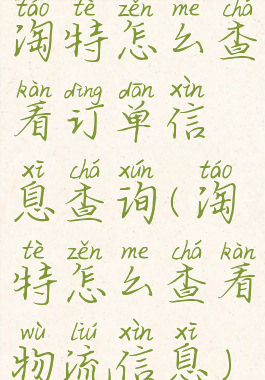 táo tè zěn me chá
淘特怎么查
kàn dìng dān xìn
看订单信
xī chá xún táo
息查询(淘
tè zěn me chá kàn
特怎么查看
wù liú xìn xī
物流信息)